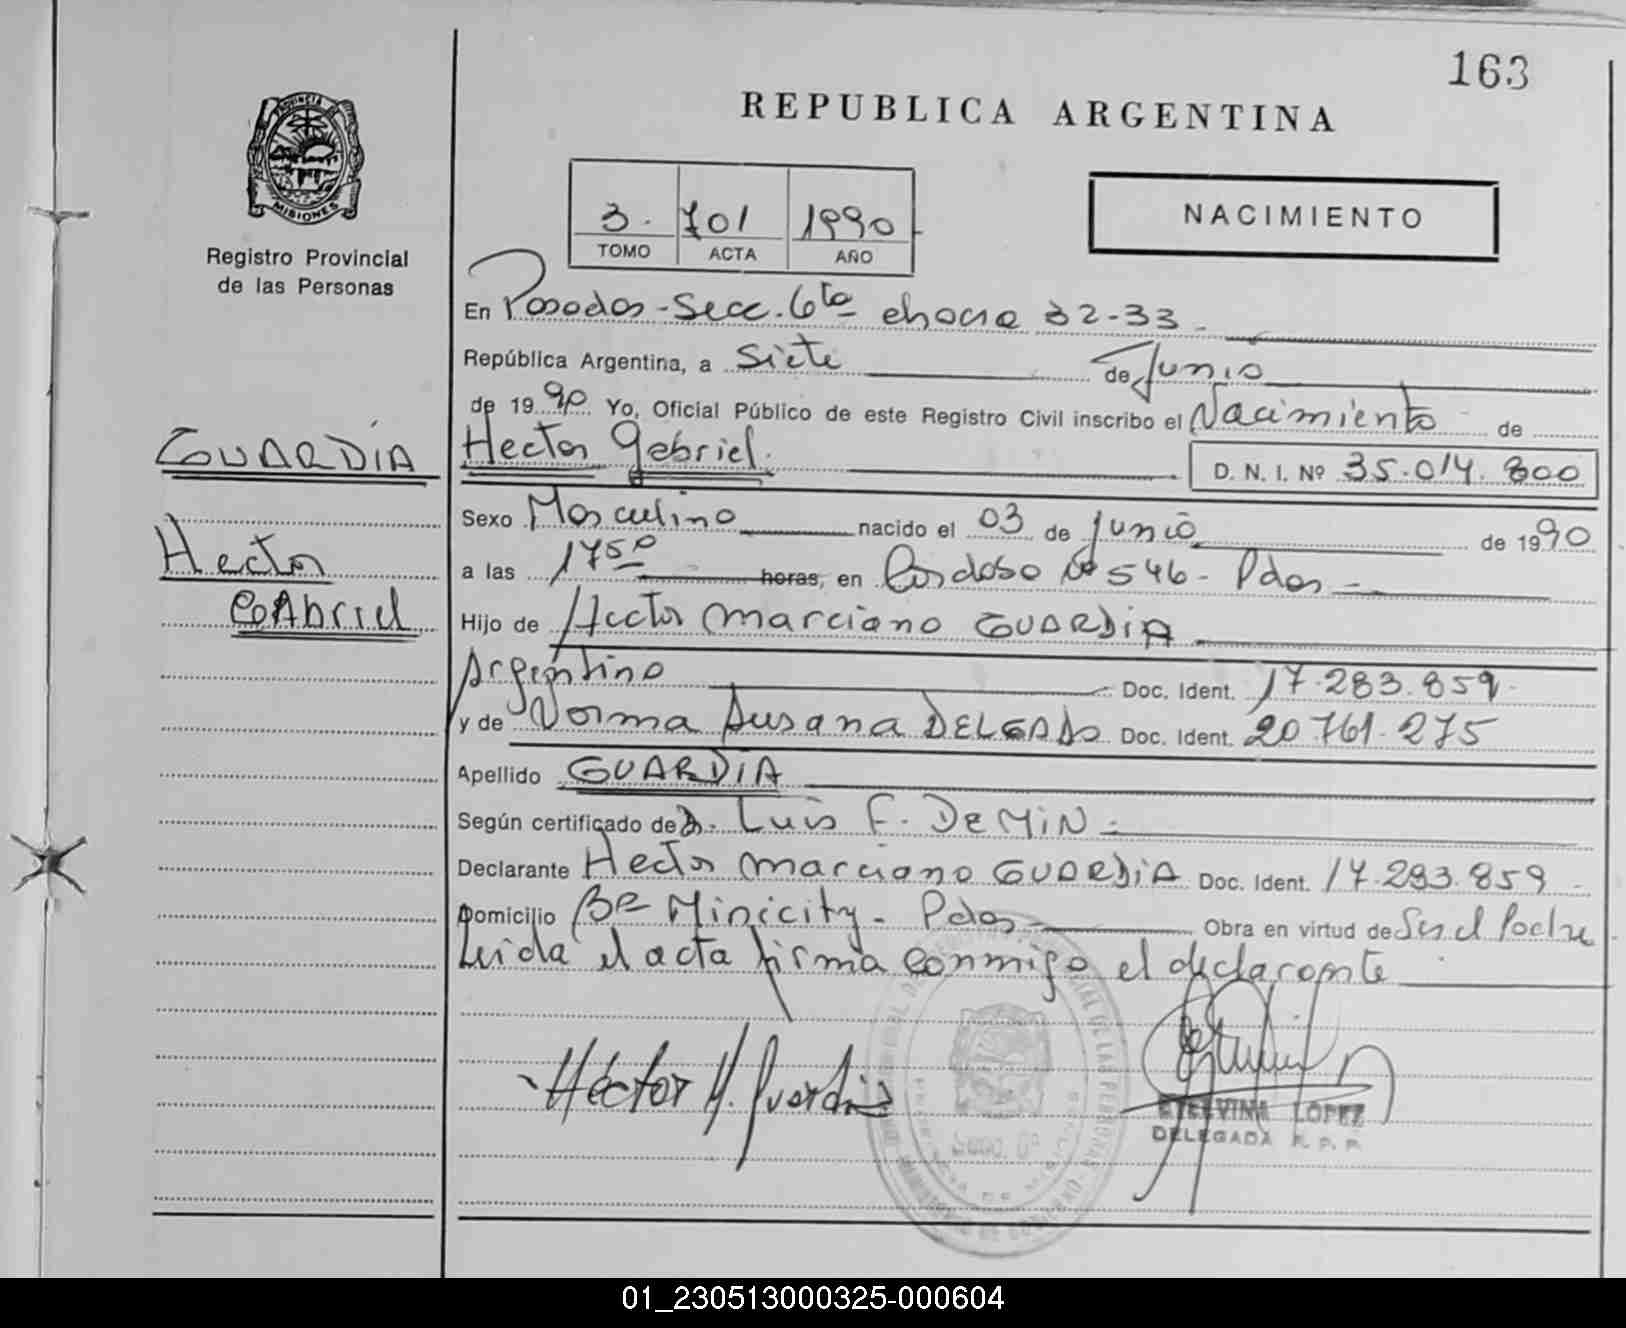 163
REPUBLICA ARGENTINA
MISIONES
Registro Provincial
de las Personas
3. 701 1990
TOMO ACTA AÑO
NACIMIENTO
En Posadas - Secc. 6ta chacra 32-33.
República Argentina, a Siete de Junio
de 1990 Yo, Oficial Público de este Registro Civil inscribo el Nacimiento de
GUARDIA
Hector Gabriel. D. N. I. Nº 35.014.800
Sexo Masculino nacido el 03 de Junio de 1990
Hector
a las 1750 horas, en Cordoba Nº 546 - Pdas -
Gabriel
Hijo de Hector Marciano GUARDIA
Argentino Doc. Ident. 17.283.859.
y de Norma Susana DELGADO Doc. Ident. 20.761.275
Apellido GUARDIA
Según certificado de Dr. Luis F. De MiN -
Declarante Hector Marciano GUARDIA Doc. Ident. 17.283.859 -
Domicilio Bº Minicity - Pdas - Obra en virtud de Ser el Padre
Leida el acta firma conmigo el declarante
Héctor M. Guardia
ETELVINA LOPEZ
DELEGADA R. P. P.
01_230513000325-000604